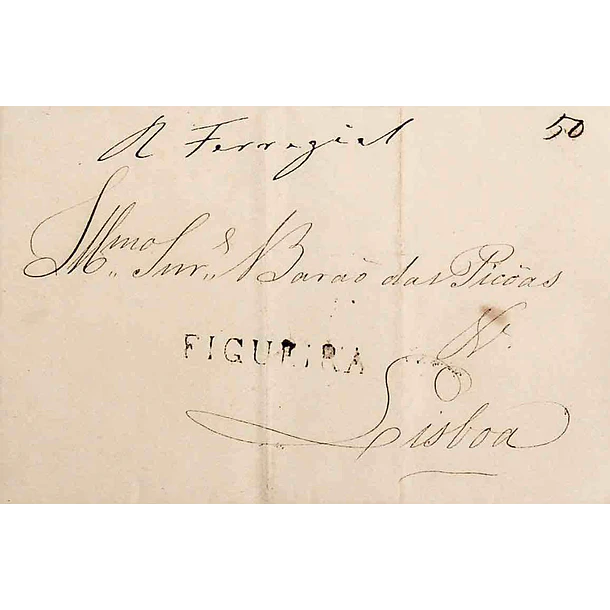 R Ferregial 50
Illmo Snr. Barão das Picôas
FIGUEIRA
Lisboa